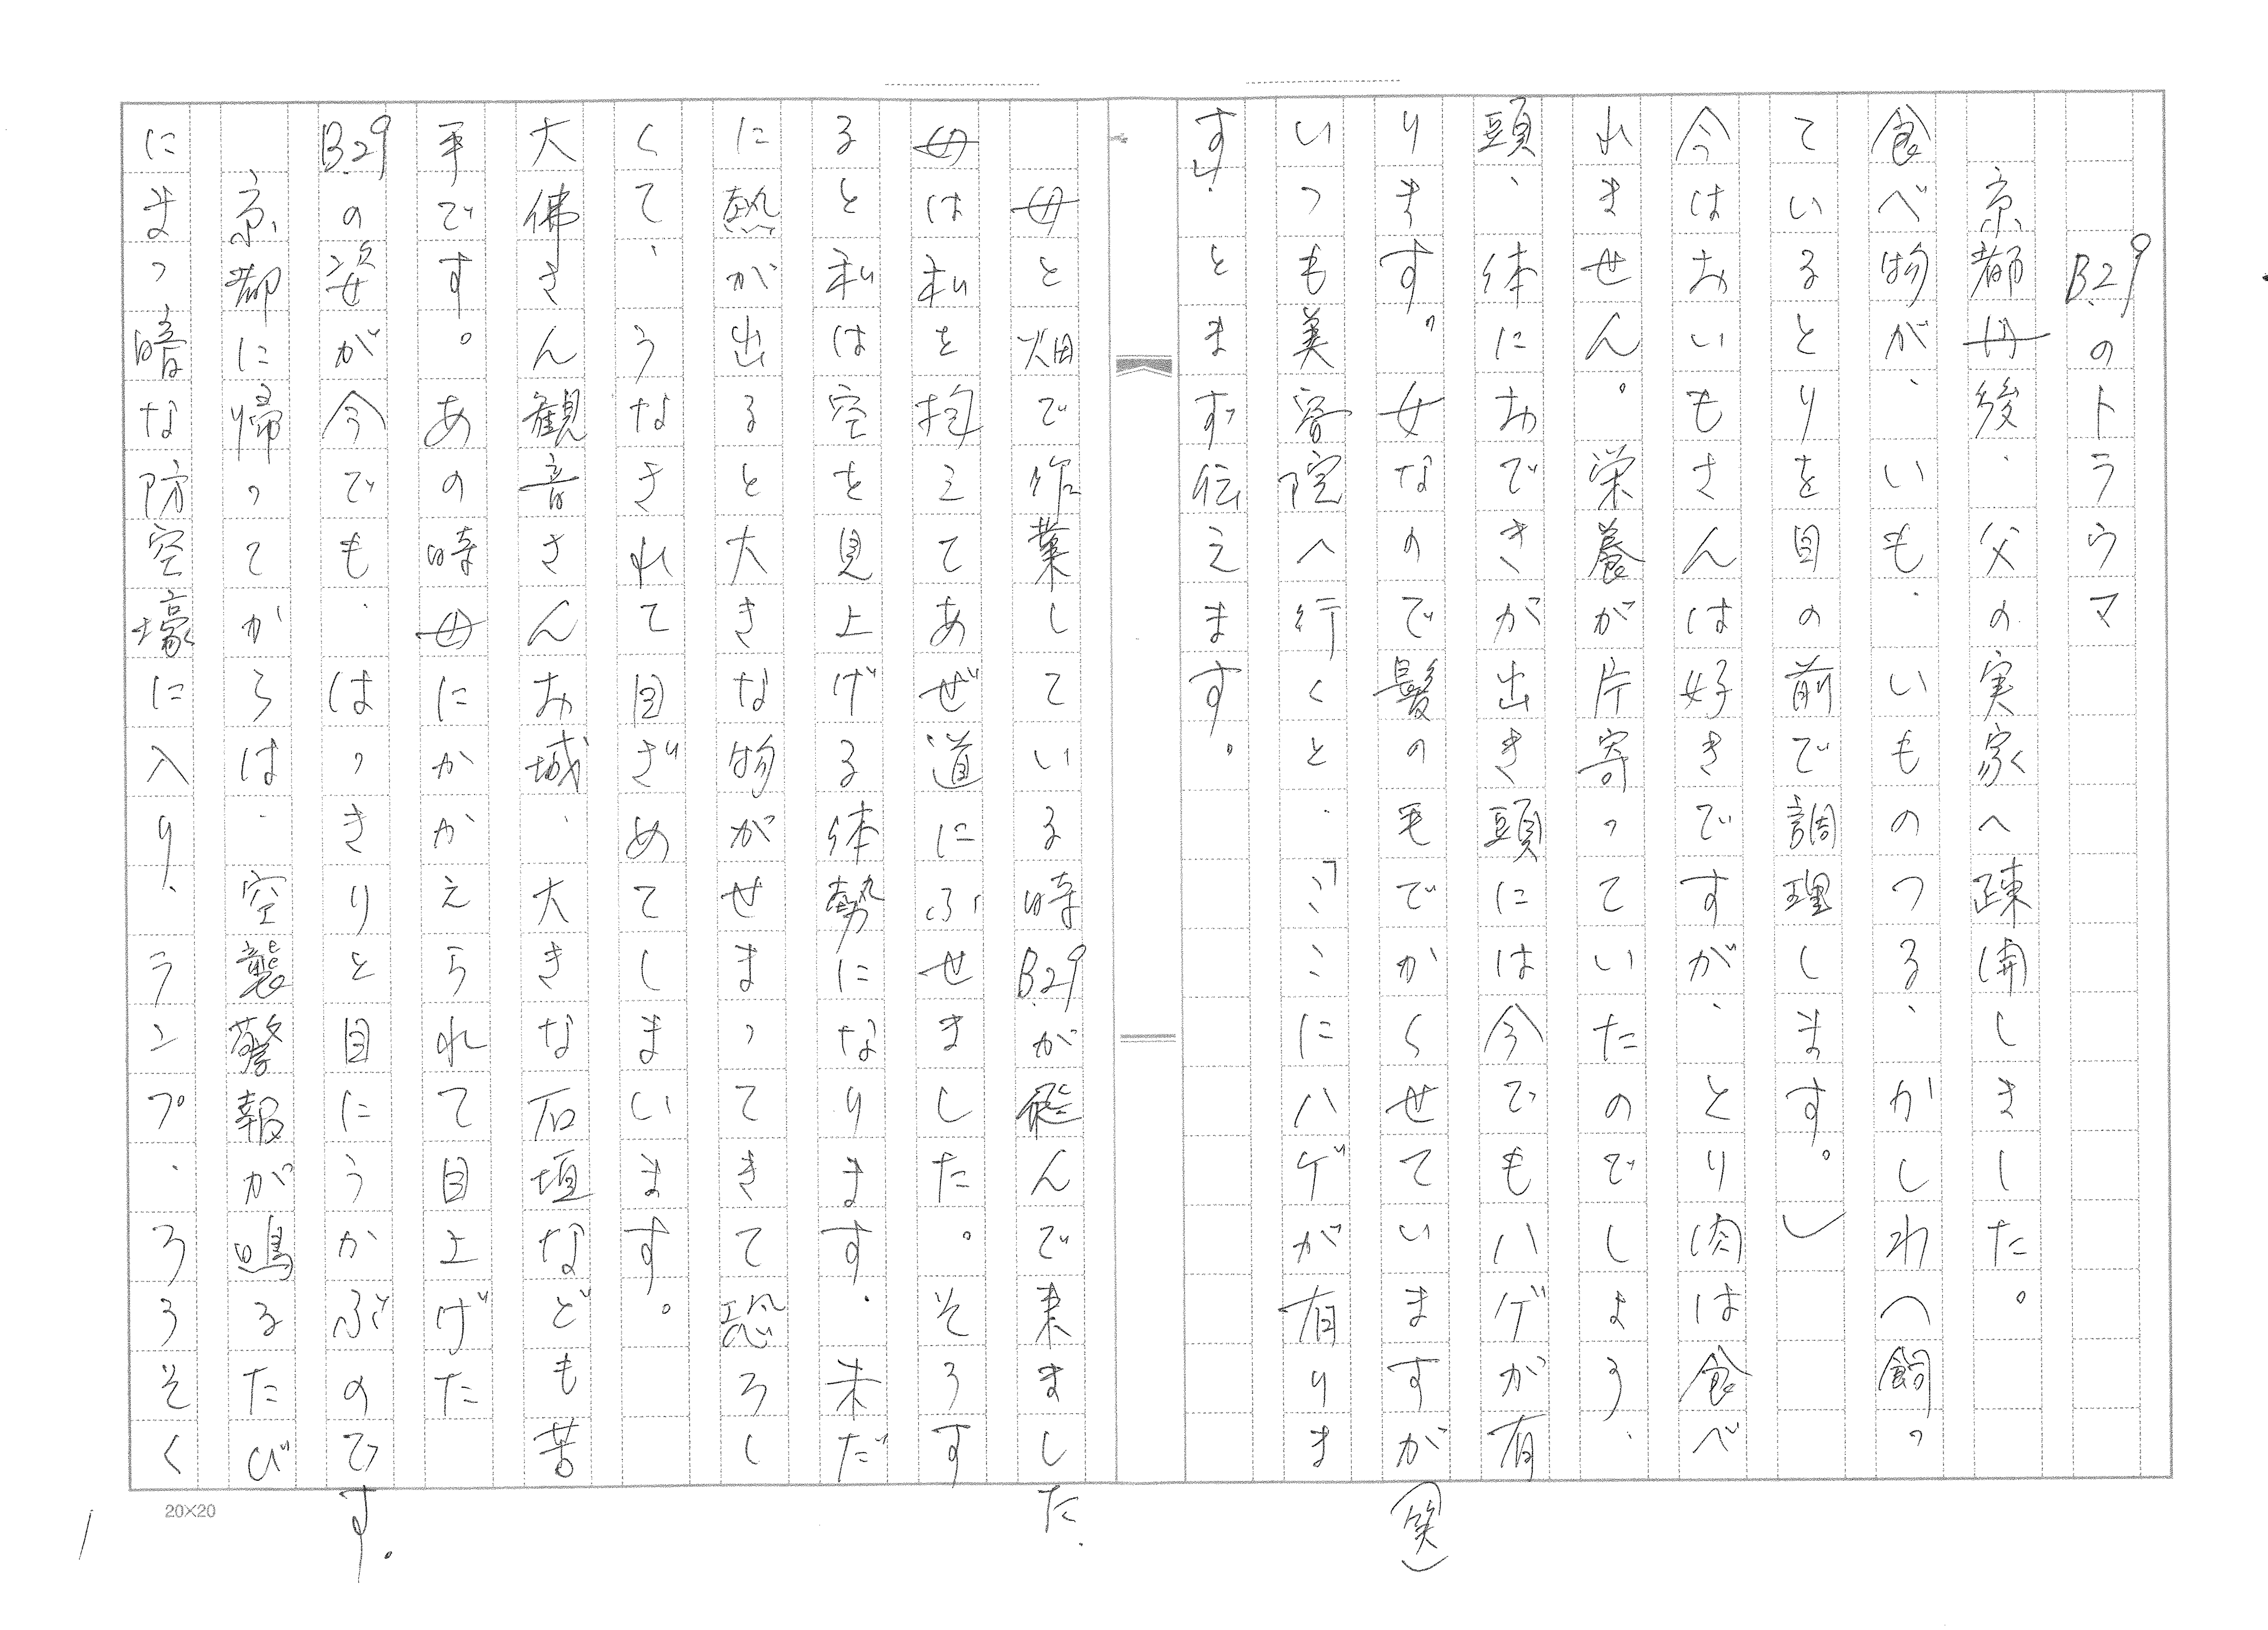 B29のトラウマ
京都丹後、父の実家へ疎開しました。
食べ物が、いも、いものつる、かしわへ飼っ
ているとりを目の前で調理します。)
今はおいもさんは好きですが、とり肉は食べ
れません。栄養が片寄っていたのでしょう、
頭、体におできが出き頭には今でもハゲが有
ります。女なので髪の毛でかくせていますが(笑)
いつも美容院へ行くと、「ここにハゲが有りま
す」とまず伝えます。
母と畑で作業している時B29が飛んで来ました。
母は私を抱えてあぜ道にふせました。そうす
ると私は空を見上げる体勢になります、未だ
に熱が出ると大きな物がせまってきて恐ろし
くて、うなされて目ざめてしまいます。
大佛さん観音さんお城、大きな石垣なども苦
手です。あの時母にかかえられて目上げた
B29の姿が今でも、はっきりと目にうかぶのです。
京都に帰ってからは、空襲警報が鳴るたび
にまっ暗な防空壕に入り、ランプ、ろうそく
20×20